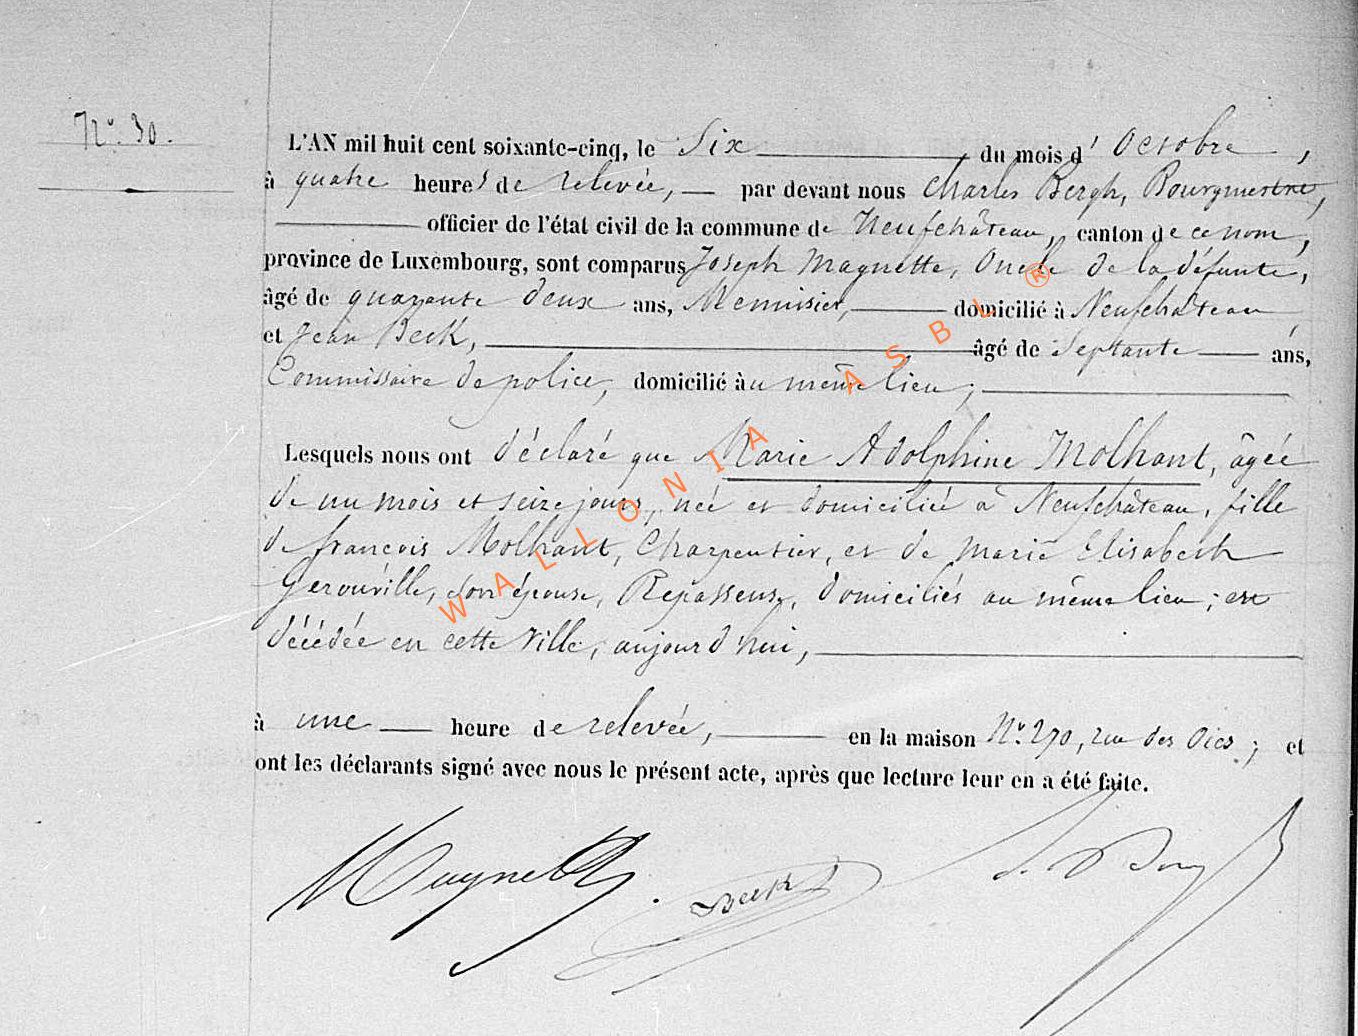 Nº 30.
L'AN mil huit cent soixante-cinq, le Six du mois d' Octobre,
à quatre heures de relevée, par devant nous Charles Bergh, Bourgmestre,
officier de l'état civil de la commune de Neufchâteau, canton de ce nom,
province de Luxembourg, sont comparus Joseph Magnette, Oncle de la défunte,
âgé de quarante deux ans, Menuisier, domicilié à Neufchâteau
et Jean Beck, âgé de Septante ans,
Commissaire de police, domicilié au même lieu;
Lesquels nous ont déclaré que Marie Adolphine Molhant, âgée
de un mois et seize jours, née et domiciliée à Neufchâteau, fille
de françois Molhant, Charpentier, et de Marie Elisabeth
Gerouville, son épouse, Repasseuse, domiciliés au même lieu; est
décédée en cette ville, aujourd'hui,
à une heure de relevée, en la maison Nº 270, rue des Oies; et
ont les déclarants signé avec nous le présent acte, après que lecture leur en a été faite.
Magnette
Beck
WALLONIA ASBL ®